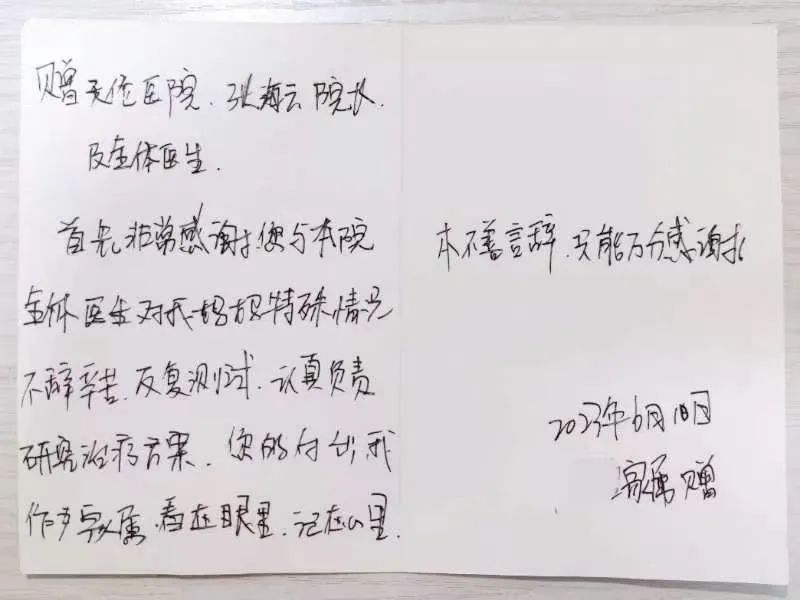 赠天佑医院、张海云院长
及全体医生.
首先非常感谢您与本院
全体医生对我妈妈特殊情况
不辞辛苦.反复测试.认真负责
研究治疗方案.您的付出,我
作为家属.看在眼里.记在心里.
本不善言辞.只能万分感谢
2023年6月18日
家属 赠